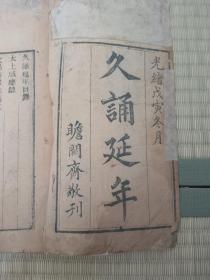 光緒戊寅冬月
久誦延年
瞻闕齋敬刊
久誦延年目錄
太上感應篇